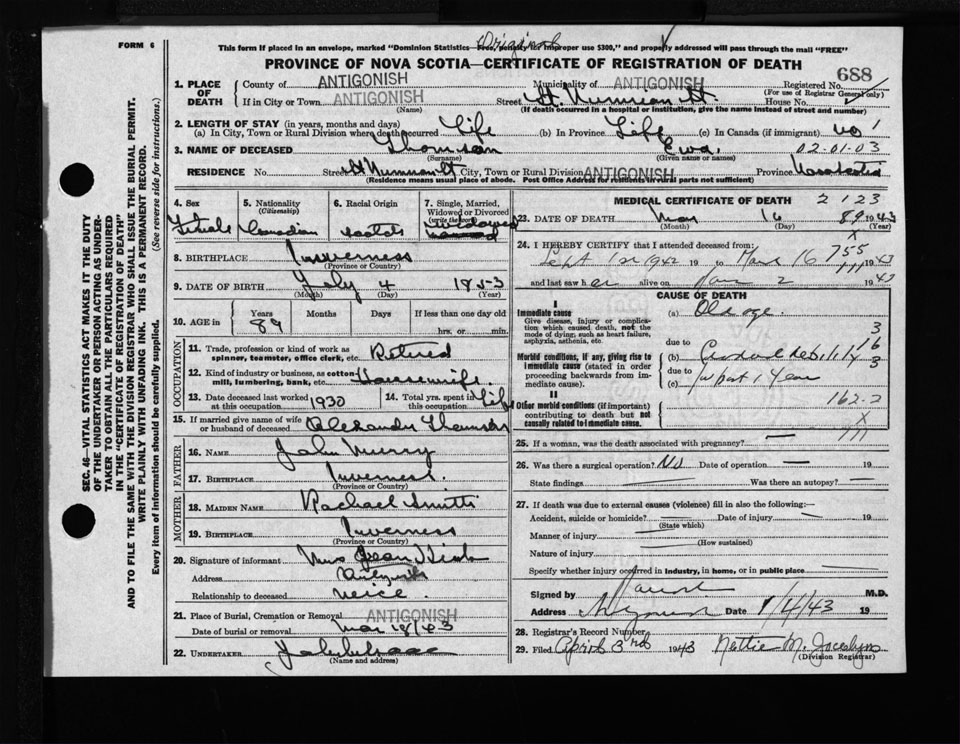 FORM 6
Original
This form if placed in an envelope, marked "Dominion Statistics—Free. Penalty for improper use $300," and properly addressed will pass through the mail "FREE"
PROVINCE OF NOVA SCOTIA—CERTIFICATE OF REGISTRATION OF DEATH
688
1. PLACE OF DEATH
County of ANTIGONISH Municipality of ANTIGONISH Registered No.
(For use of Registrar General only)
If in City or Town ANTIGONISH Street St. House No.
(Name) (If death occurred in a hospital or institution, give the name instead of street and number)
2. LENGTH OF STAY (in years, months and days)
(a) In City, Town or Rural Division where death occurred Life (b) In Province Life (c) In Canada (if immigrant) no
3. NAME OF DECEASED Thomson Eva. 02-01-03
(Surname) (Given name or names)
RESIDENCE No. Street St City, Town or Rural Division ANTIGONISH Province Nova Scotia
(Residence means usual place of abode. Post Office Address for residents in rural parts not sufficient)
4. Sex Female
5. Nationality (Citizenship) Canadian
6. Racial Origin Scotch
7. Single, Married, Widowed or Divorced (write the word) Widowed
8. BIRTHPLACE Inverness
(Province or Country)
9. DATE OF BIRTH July 4 1853
(Month) (Day) (Year)
10. AGE in Years 89 Months Days If less than one day
hrs. or min.
OCCUPATION
11. Trade, profession or kind of work as spinner, teamster, office clerk, etc. Retired
12. Kind of industry or business, as cotton mill, lumbering, bank, etc. Housewife
13. Date deceased last worked at this occupation 1930
14. Total yrs. spent in this occupation Life
15. If married give name of wife or husband of deceased Alexander
FATHER
16. NAME John
17. BIRTHPLACE Inverness
(Province or Country)
MOTHER
18. MAIDEN NAME Rachael Smith
19. BIRTHPLACE Inverness
(Province or Country)
20. Signature of informant Mrs Jean
Address Antigonish
Relationship to deceased neice
21. Place of Burial, Cremation or Removal ANTIGONISH
Date of burial or removal Mar 18/43
22. UNDERTAKER
(Name and address)
MEDICAL CERTIFICATE OF DEATH 2123
23. DATE OF DEATH Mar 16 1943
(Month) (Day) (Year)
24. I HEREBY CERTIFY that I attended deceased from:
Sept 1st 1942 19 to March 16 1943
and last saw her alive on Jan 2 1943
CAUSE OF DEATH
I
Immediate cause
Give disease, injury or complication which caused death, not the mode of dying, such as heart failure, asphyxia, asthenia, etc.
(a) Old age.
due to
Morbid conditions, if any, giving rise to immediate cause (stated in order proceeding backwards from immediate cause)
(b) debility
due to
(c) for past 1 year
II
Other morbid conditions (if important) contributing to death but not causally related to immediate cause.
162-2
25. If a woman, was the death associated with pregnancy? —
26. Was there a surgical operation? No Date of operation — 19
State findings Was there an autopsy? —
27. If death was due to external causes (violence) fill in also the following:—
Accident, suicide or homicide? Date of injury 19
(State which)
Manner of injury
(How sustained)
Nature of injury
Specify whether injury occurred in industry, in home, or in public place
Signed by M.D.
Address Date 1/4/43 19
28. Registrar's Record Number
29. Filed April 3rd 1943 Nettie M. Jocelyn
(Division Registrar)
SEC. 46—VITAL STATISTICS ACT MAKES IT THE DUTY
OF THE UNDERTAKER OR PERSON ACTING AS UNDERTAKER TO OBTAIN ALL THE PARTICULARS REQUIRED
IN THE "CERTIFICATE OF REGISTRATION OF DEATH"
AND TO FILE THE SAME WITH THE DIVISION REGISTRAR WHO SHALL ISSUE THE BURIAL PERMIT.
WRITE PLAINLY WITH UNFADING INK. THIS IS A PERMANENT RECORD.
Every item of information should be carefully supplied. (See reverse side for instructions.)